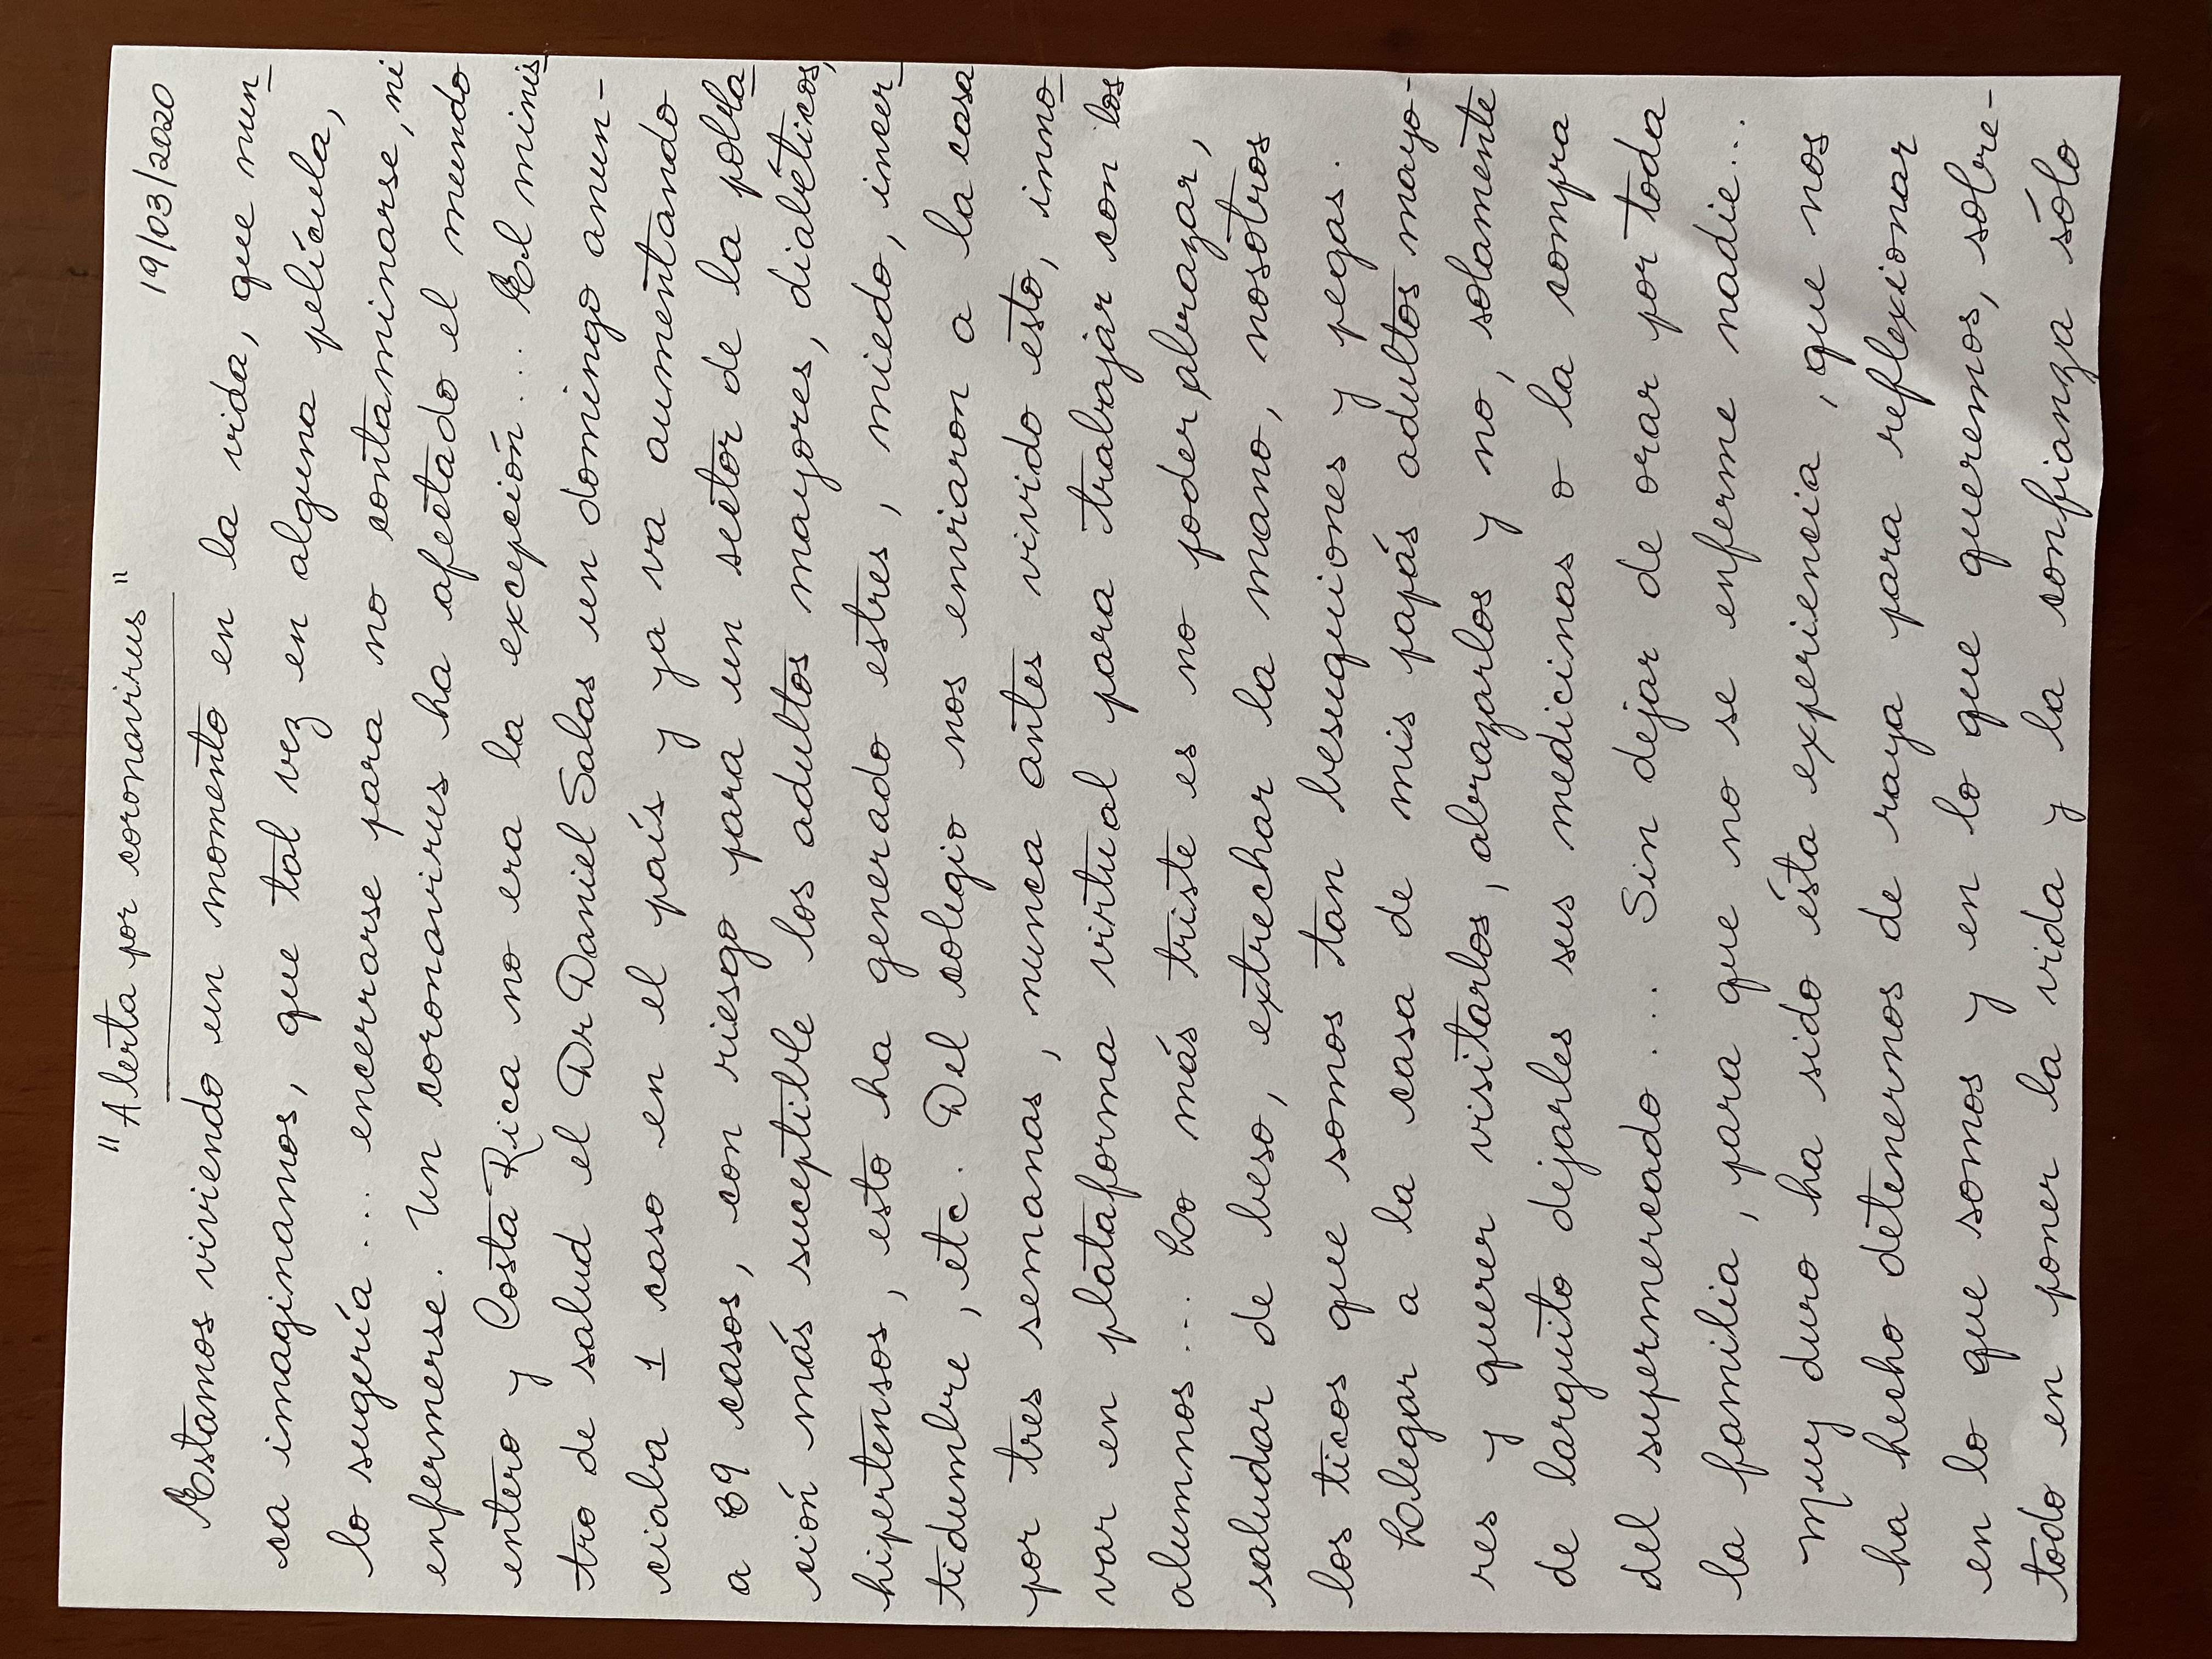 "Alerta por coronavirus"
19/03/2020
Estamos viviendo un momento en la vida, que nun-
ca imaginamos, que tal vez en alguna película,
lo sugería... encerrarse para no contaminarse, ni
enfermerse. Un coronavirus ha afectado el mundo
entero y Costa Rica no era la excepción... El minis
tro de salud el Dr Daniel Salas un domingo anun-
ciaba 1 caso en el país y ya va aumentando
a 69 casos, con riesgo para un sector de la pobla
ción más suceptible los adultos mayores, diabéticos,
hipertensos, esto ha generado estres, miedo, incer
tidumbre, etc. Del colegio nos enviaron a la casa
por tres semanas, nunca antes vivido esto, inno
var en plataforma virtual para trabajar con los
alumnos... Lo más triste es no poder abrazar,
saludar de beso, extrechar la mano, nosotros
los ticos que somos tan besuquiones y pegas.
Llegar a la casa de mis papás adultos mayo-
res y querer visitarlos, abrazarlos y no, solamente
de larguito dejarles sus medicinas o la compra
del supermercado... Sin dejar de orar por toda
la familia, para que no se enferme nadie...
Muy duro ha sido ésta experiencia, que nos
ha hecho detenernos de raya para reflexionar
en lo que somos y en lo que queremos, sobre-
todo en poner la vida y la confianza sólo